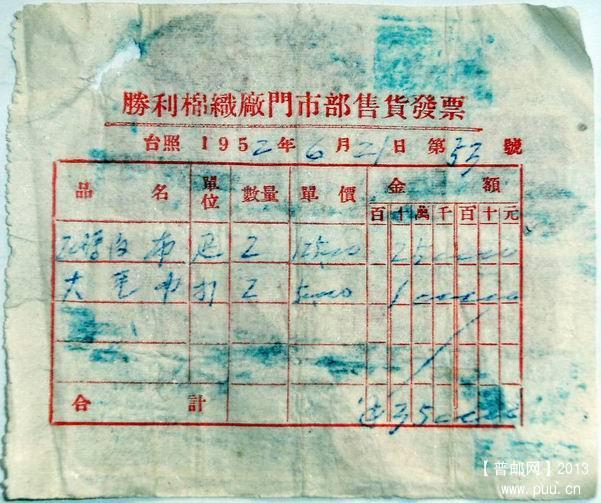 勝利棉織廠門市部售貨發票
台照 1952年6月21日 第53號
品名 單位 數量 單價 金額
百十萬千百十元
布 疋 2 125000 250000
大毛巾 打 2 50000 100000
合計 350000
【普邮网】2013
www.puu.cn